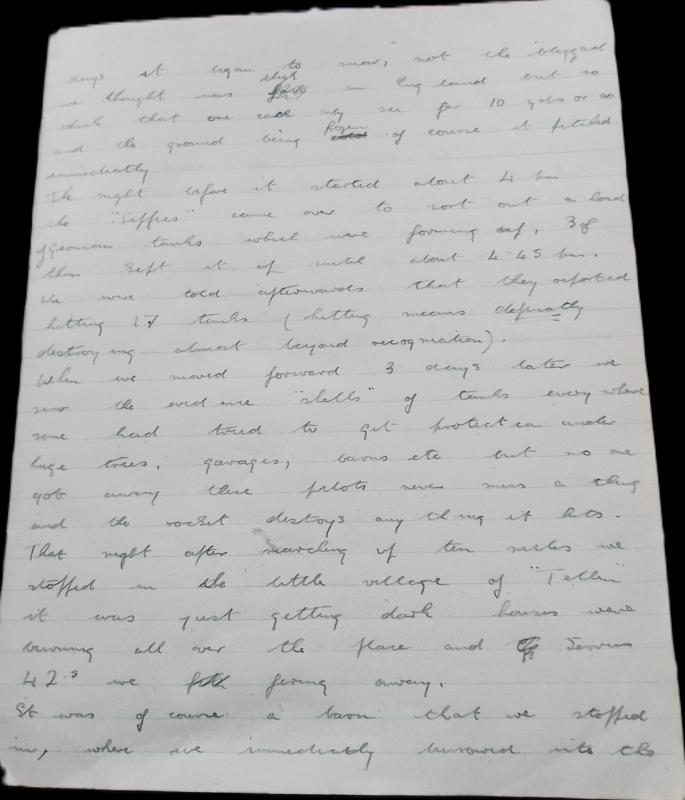 days it began to snow, not the "blizzard
we thought was thick in England but so
thick that one can only see for 10 yds or so
and the ground being frozen of course it pitched
immediately
The night before it started about 4 pm
the "Tiffies" came over to sort out a load
of German tanks which were forming up, 3 of
them kept it up until about 4-45 pm.
We were told afterwards that they reported
hitting 17 tanks (hitting means definatly
destroying almost beyond recognation).
When we moved forward 3 days later we
saw the evidence "shells" of tanks everywhere
some had tried to get protection under
huge trees, garages, barns etc but no one
got away these pilots never miss a thing
and the rocket destroys anything it hits.
That night after marching up ten miles we
stopped in the little village of "Tellin"
it was just getting dark houses were
burning all over the place and
42.s we firing away.
It was of course a barn that we stopped
in, where we immediatly burrowed into the